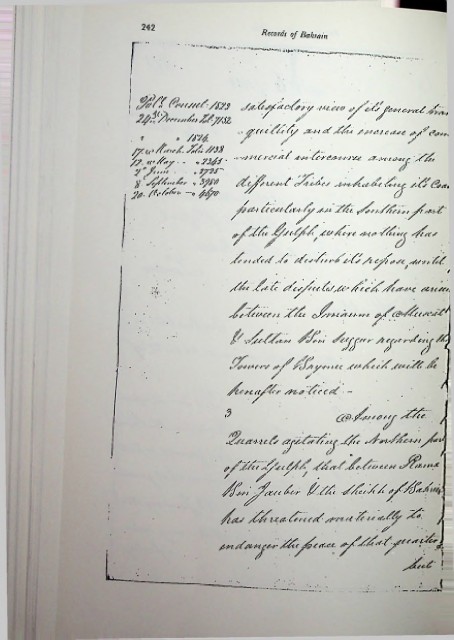 242
Records of Bahrain
Poll. Consn. 1823
24th December Fol. 7132
" " 1824
17 " March Folio 1138
17 " May " 2245
2d June " 2725
8 September " 3980
20 October " 4670
satisfactory view of it's general tran
quillity and the increase of com
mercial intercourse among the
different Tribes inhabiting it's Coas
particularly in the Southern part
of the Gulph, where nothing has
tended to disturb it's repose, until
the late disputes which have arisen
between the Imaum of Muscat
& Sultan Bin Suggur regarding the
Towers of Brymee which will be
hereafter noticed. -
3
Among the
Quarrels agitating the Northern part
of the Gulph, that between Rama
Bin Jauber & the Sheikh of Bahrein
has threatened materially to
endanger the peace of that quarter
but